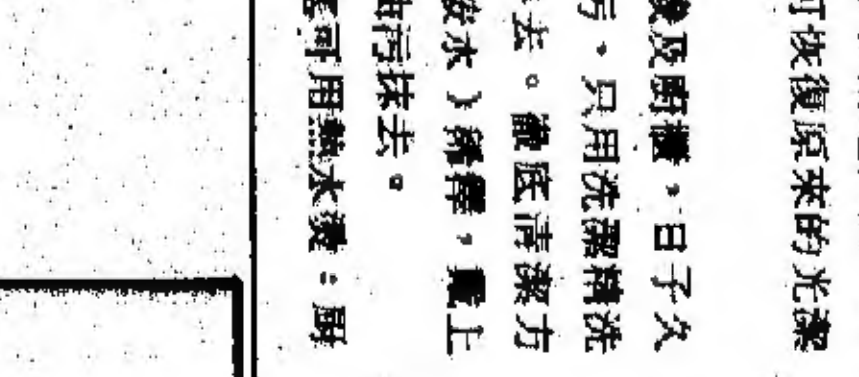 可恢復原來的光潔
及廚櫃，日子久
污。只用洗潔精洗
去。徹底清潔力
水）稀釋，上
油污抹去。
可用熱水燙。